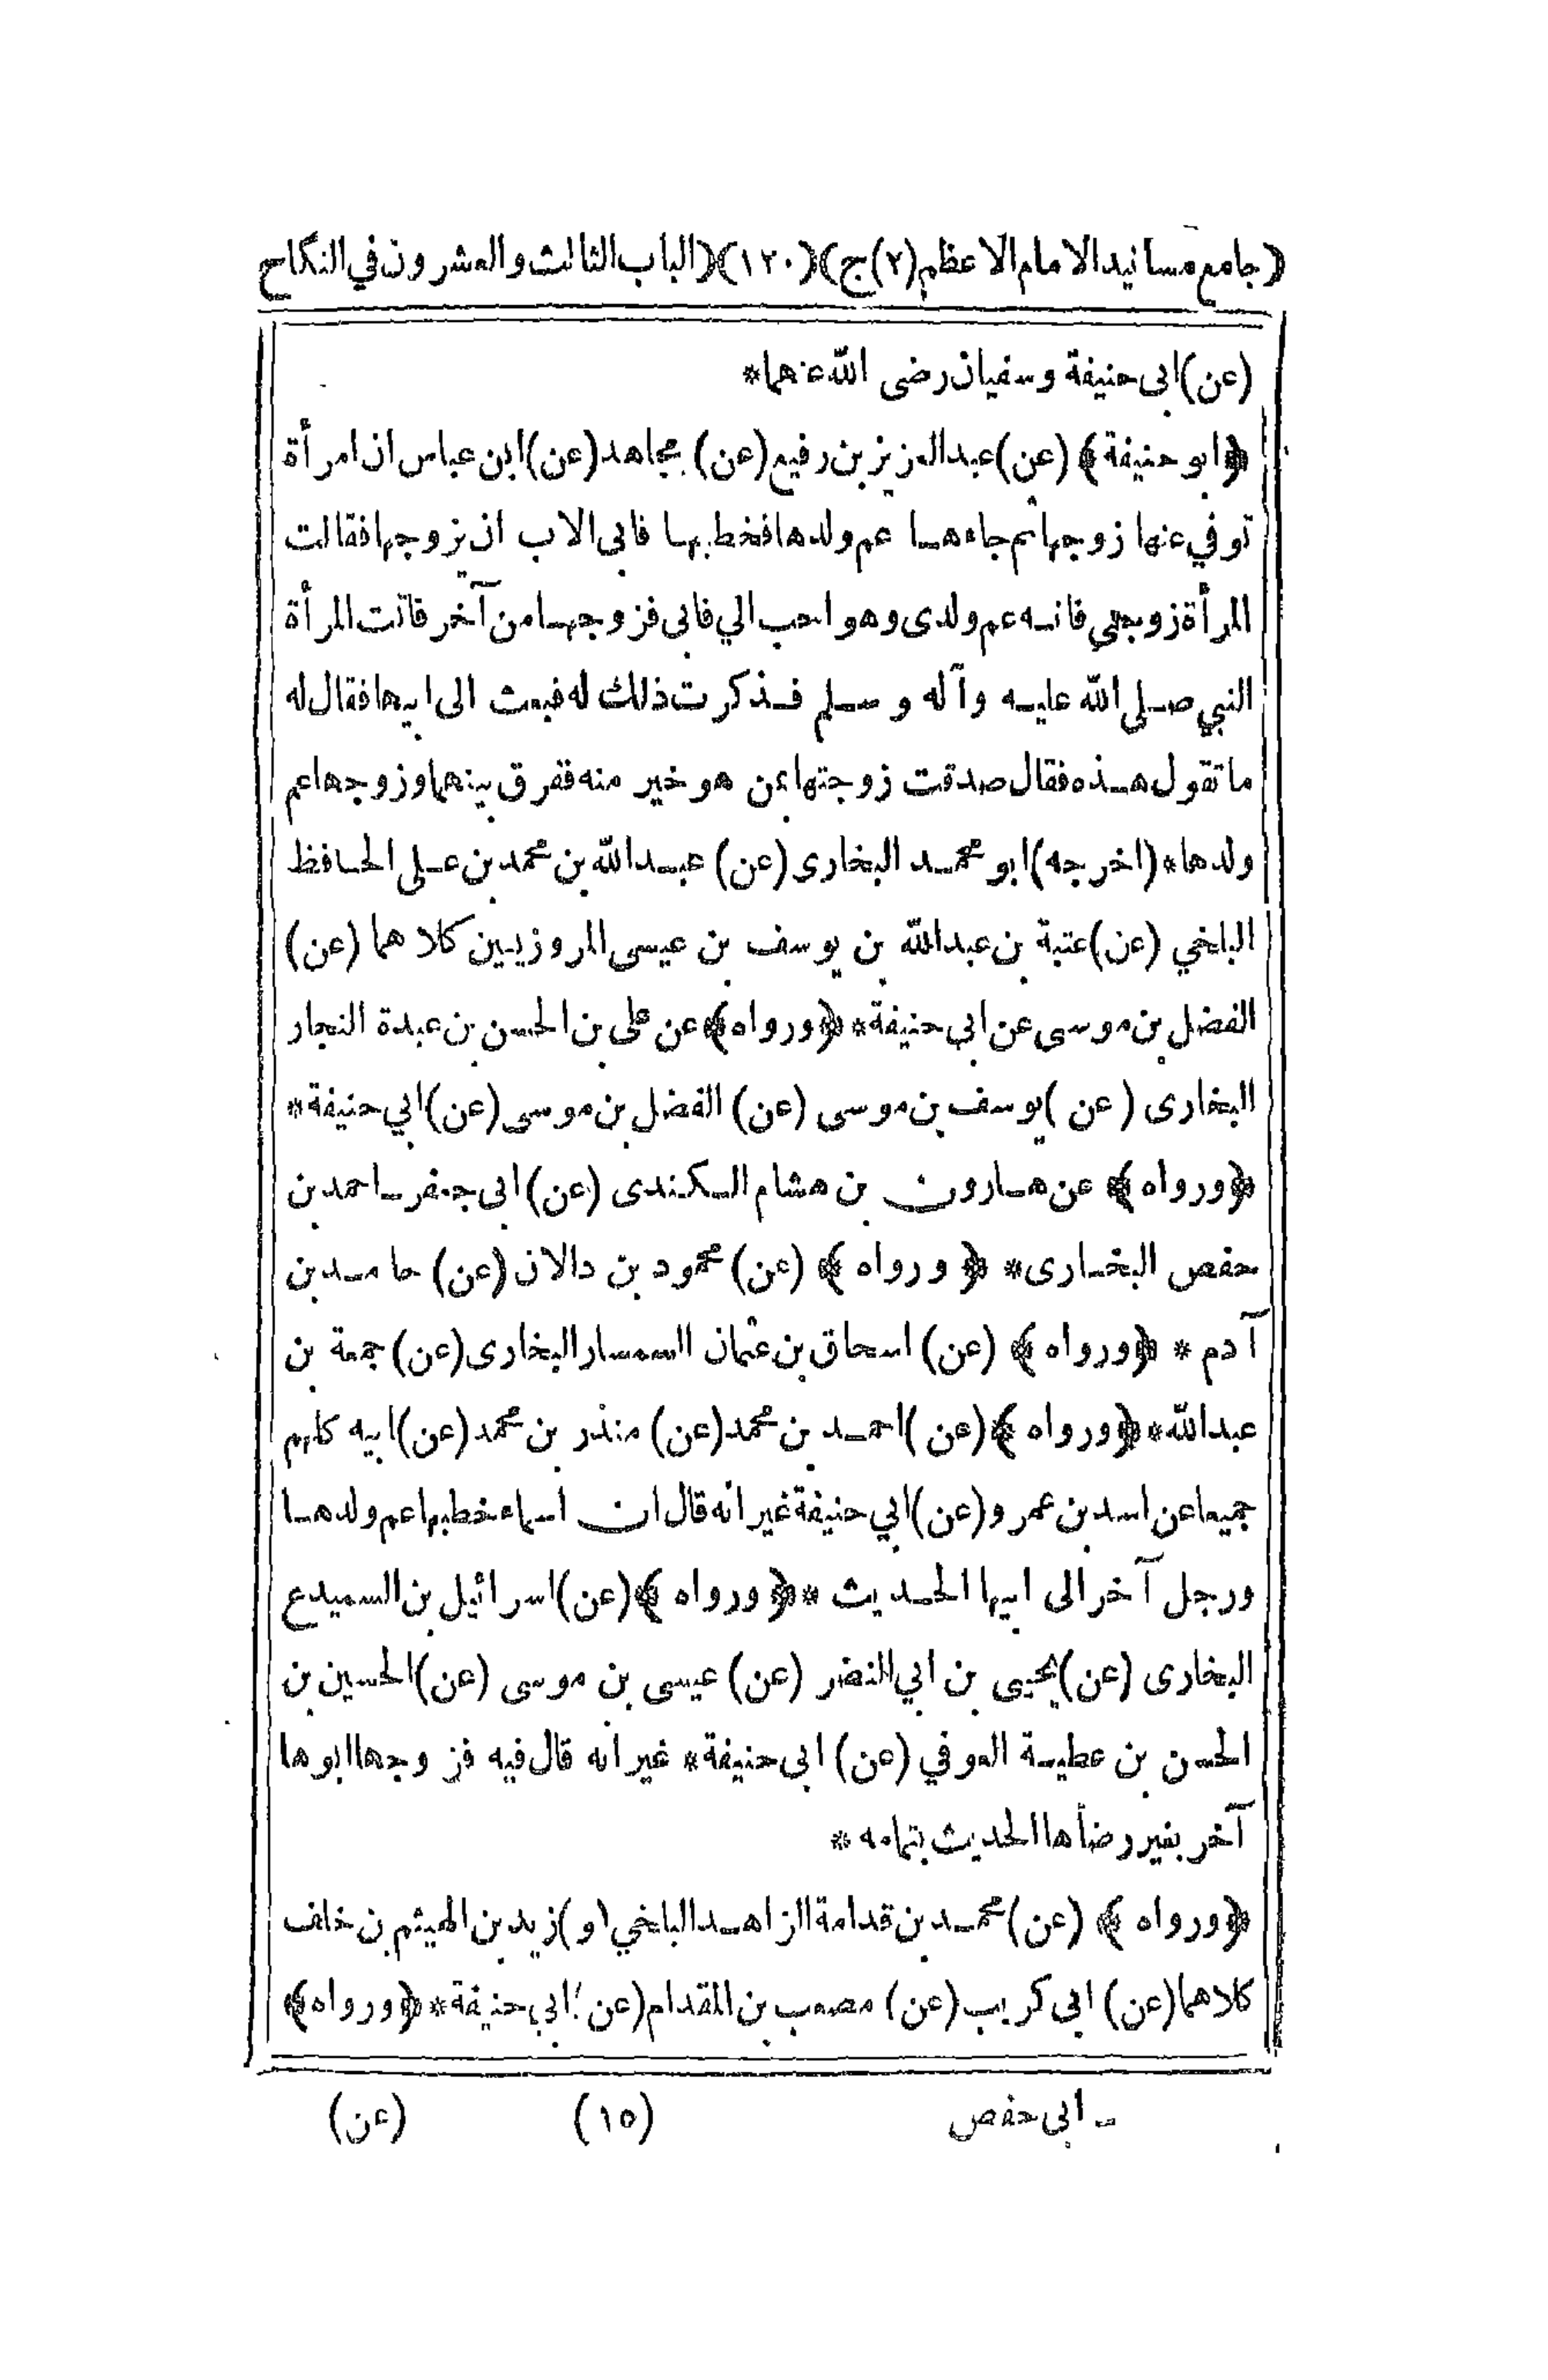 (جامع مسانيد الامام الاعظم (٢) ج)(١٢٠)(الباب الثالث والعشرون في النكاح
(عن) ابى حنيفة وسفيان رضى الله عنهما*
﴿ابو حنيفة﴾ (عن) عبد العزيز بن رفيع (عن) مجاهد (عن) ابن عباس ان امرأة
توفي عنها زوجها ثم جاءهـا عم ولدها فخطبها فابى الاب ان يزوجها فقالت
المرأة زوجني فانـه عم ولدى وهو احب الي فابى فزوجهـا من آخر فاتت المرأة
النبي صـلى الله عليـه وآله وسـلم فـذكرت ذلك له فبعث الى ابيها فقال له
ما تقول هـذه فقال صدقت زوجتها بمن هو خير منه ففرق بينهما وزوجها عم
ولدها* (اخرجه) ابو محمـد البخارى (عن) عبـد الله بن محمد بن عـلى الحـافظ
البلخي (عن) عتبة بن عبد الله بن يوسف بن عيسى المروزيـين كلاهما (عن)
الفضل بن موسى عن ابي حنيفة* ﴿ورواه﴾ عن على بن الحسن بن عبدة النجار
البخارى (عن) يوسف بن موسى (عن) الفضل بن موسى (عن) ابي حنيفة*
﴿ورواه﴾ عن هـارون بن هشام الـكندى (عن) ابى جعفر ـ احمد بن
حفص البخـارى* ﴿ورواه﴾ (عن) محمود بن دالان (عن) حامـد بن
آدم * ﴿ورواه﴾ (عن) اسحاق بن عثمان السمسار البخارى (عن) جمعة بن
عبد الله* ﴿ورواه﴾ (عن) احمـد بن محمد (عن) منذر بن محمد (عن) ابيه كلهم
جميعا عن اسد بن عمرو (عن) ابي حنيفة غير انه قال ان اسماء خطبها عم ولدهـا
ورجل آخر الى ابيها الحـديث *﴿ورواه﴾ (عن) اسرائيل بن السميدع
البخارى (عن) يحيى بن ابي النضر (عن) عيسى بن موسى (عن) الحسين بن
الحسن بن عطيـة العوفي (عن) ابى حنيفة* غير انه قال فيه فزوجها ابوها
آخر بغير رضأها الحديث بتمامه *
﴿ورواه﴾ (عن) محمـد بن قدامة الزاهـد البلخي (و) زيد بن الهيثم بن خلف
كلاهما (عن) ابى كريب (عن) مصعب بن المقدام (عن) ابي حنيفة* ﴿ورواه﴾
ـ ابى حفص (١٥) (عن)